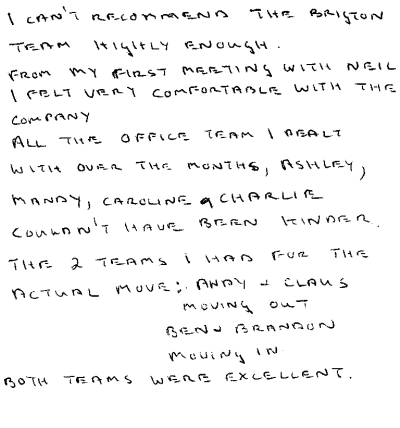 I CAN'T RECOMMEND THE BRIGTON
TEAM HIGHLY ENOUGH.
FROM MY FIRST MEETING WITH NEIL
I FELT VERY COMFORTABLE WITH THE
COMPANY
ALL THE OFFICE TEAM I DEALT
WITH OVER THE MONTHS, ASHLEY,
MANDY, CAROLINE & CHARLIE
COULDN'T HAVE BEEN KINDER.
THE 2 TEAMS I HAD FOR THE
ACTUAL MOVE: ANDY & CLAUS
MOVING OUT
BEN & BRANDON
MOVING IN.
BOTH TEAMS WERE EXCELLENT.